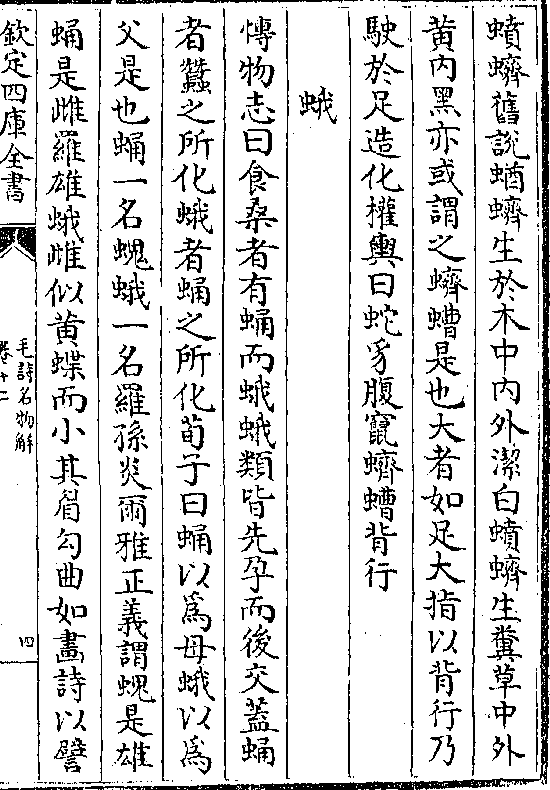 蟦蠐舊說蝤蠐生於木中內外潔白蟦蠐生糞草中外
黃內黑亦或謂之蠐螬是也大者如足大指以背行乃
駛於足造化權輿曰蛇豸腹竄蠐螬背行
蛾
愽物志曰食桑者有蛹而蛾蛾類皆先孕而後交蓋蛹
者蠶之所化蛾者蛹之所化荀子曰蛹以為母蛾以為
父是也蛹一名螝蛾一名羅孫炎爾雅正義謂螝是雄
蛹是雌羅雄蛾雌似黃蝶而小其眉勾曲如畫詩以譬
欽定四庫全書
毛詩名物解
卷十二
四